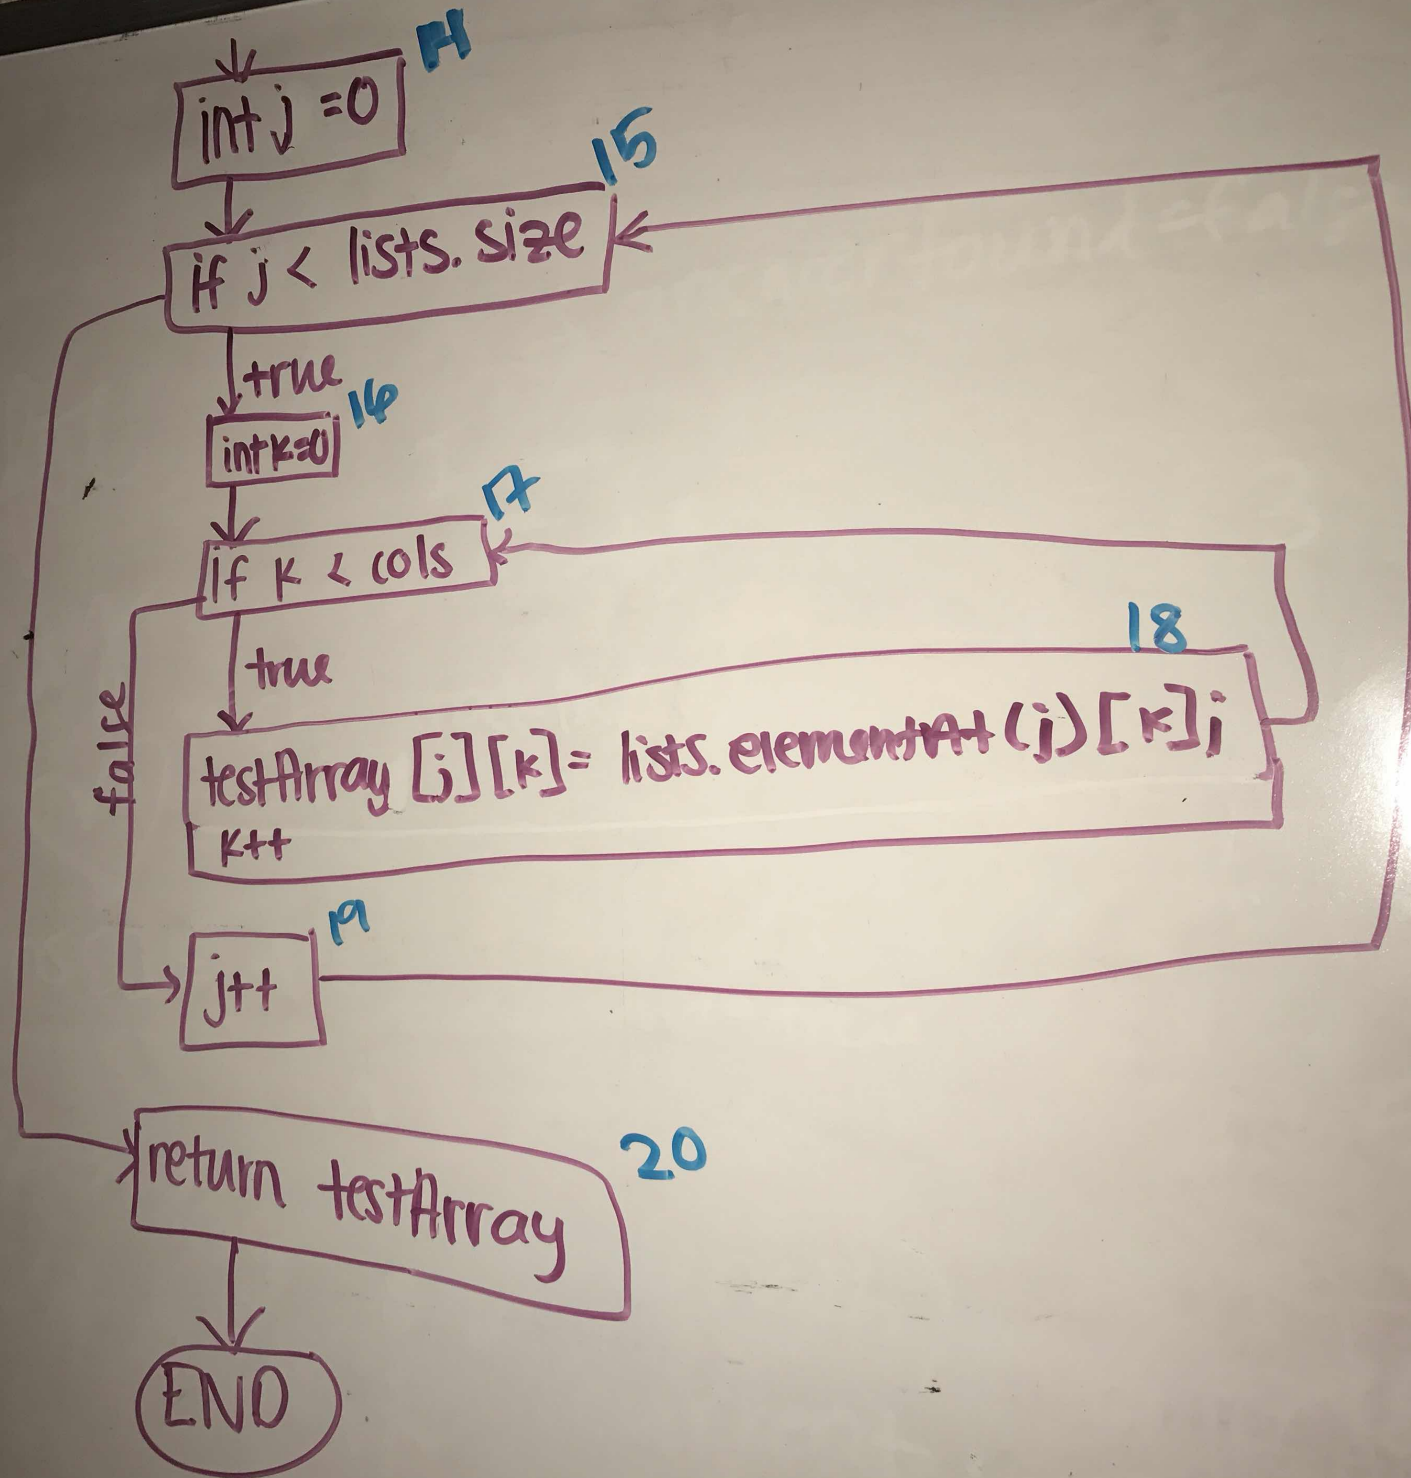 14
int j =0
15
if j < lists.size
true
16
int k=0
17
if k < cols
true
18
false
testArray [j][k]= lists.elementAt(j)[k];
k++
19
j++
20
return testArray
END